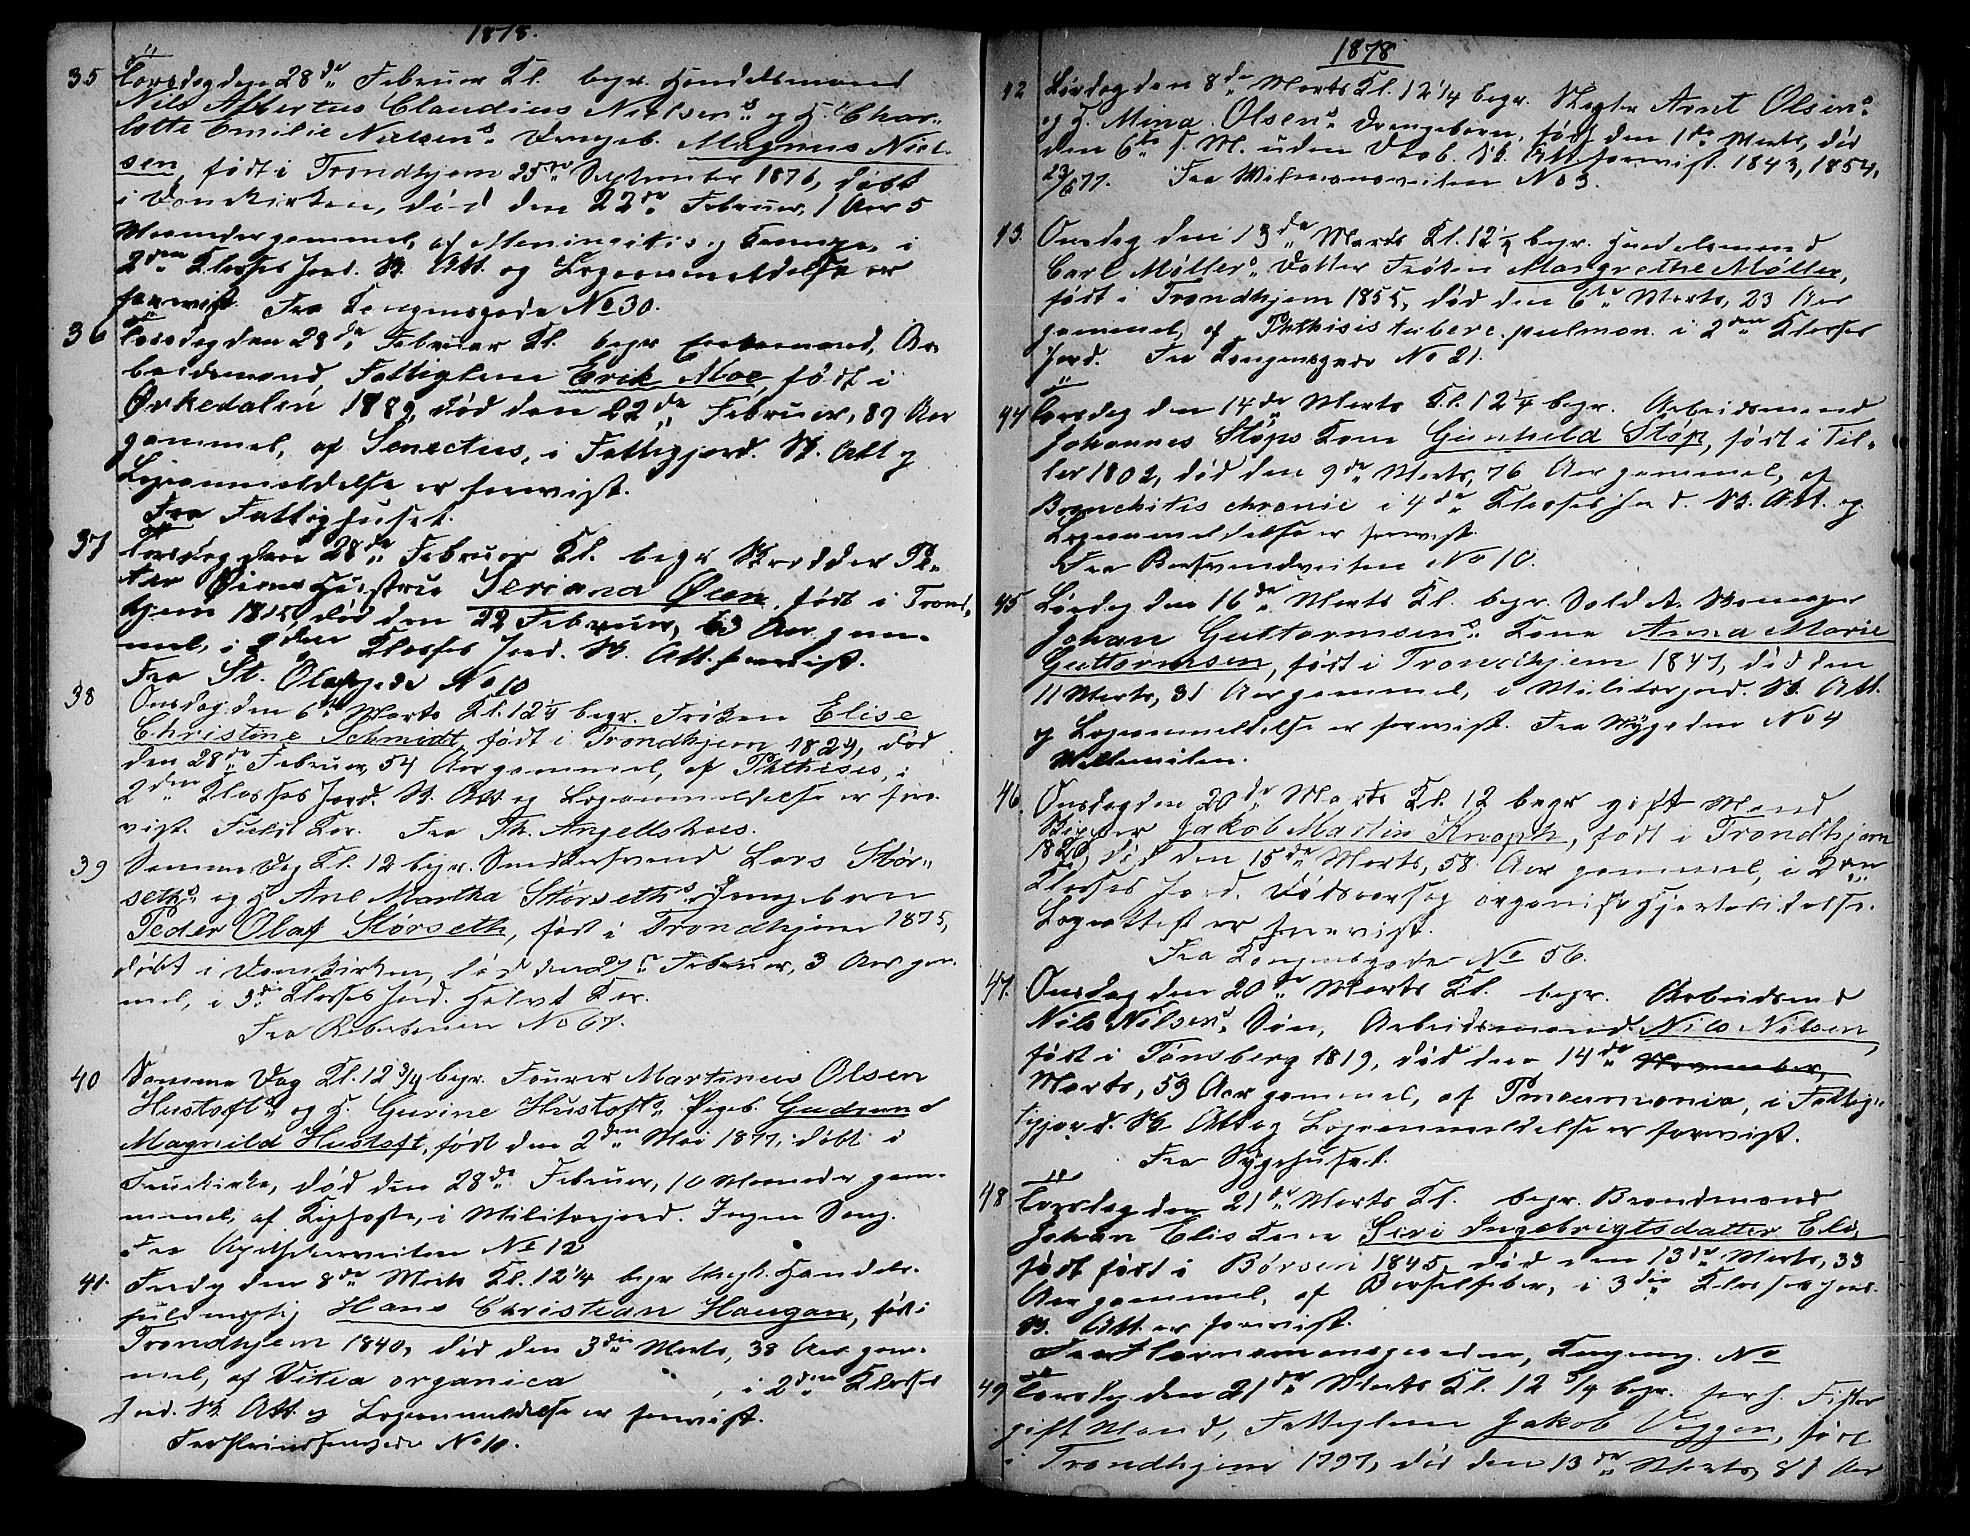 1878.
35 Torsdag den 28de Februar Kl. begr. Handelsmand
Nils Albertus Claudius Nielsens og H. Char-
lotte Emilie Nielsens Drengeb. Magnus Niel-
sen, født i Trondhjem 25de September 1876, døbt
i Domkirken, død den 22de Februar, 1 Aar 5
Maaneder gammel, af Meningitis, i
2den Klasses Jord. Sk. Att. og Logeanmeldelse er
forevist. Fra Kongensgade No 30.
36 Torsdag den 28de Februar Kl. begr. Ar-
beidsmand, Fattiglem Erik Moe, født i
Ørkedalen 1889, død den 22de Februar, 89 Aar
gammel, af Senectus, i Fattigjord. Sk. Att og
Logeanmeldelse er forevist.
Fra Fattighuset.
37 Torsdag den 28de Februar Kl. begr. Skredder Pe-
ter Øiens Hustru Seriana Øien, født i Trond-
hjem 1815, død den 22 Februar, 63 Aar gam-
mel, i 2den Klasses Jord. Sk. Att. forevist.
Fra St. Olafsgade No 10
38 Onsdag den 6te Marts Kl. 12¼ begr. Frøken Elise
Christine Schmidt, født i Trondhjem 1824, død
den 28de Februar, 54 Aar gammel, af Phthisis, i
2den Klasses Jord. Sk. Att og Logeanmeldelse er fore-
vist. Fuldt Kor. Fra Th. Angells hus.
39 Samme Dag Kl. 12 begr. Snedkersvend Lars Stør-
seths og H Ane Martha Størseths Drengebarn
Peder Olaf Størseth, født i Trondhjem 1875,
døbt i Domkirken, død den 27de Februar, 3 Aar gam-
mel, i 3die Klasses Jord. Halvt Kor.
Fra Reberbanen No 67.
40 Samme Dag Kl. 12¾ begr. Fourer Martinus Olsen
Hustofts og H. Gurine Hustofts Pigeb. Gudrun
Magnild Hustoft, født den 2den Mai 1877, døbt i
Fruekirke, død den 28de Februar, 10 Maaneder gam-
mel, af Kighoste, i Militærjord. Ingen Sang.
Fra Apothekerveiten No 12
41. Fredag den 8de Marts Kl. 12¼ begr. Ungk. Handels-
fuldmægtig Hans Christian Haugan, født i
Trondhjem 1840, død den 3die Marts, 38 Aar gam-
mel, af Vitia organica, i 2den Klasses
Jord. Sk. Att. og Logeanmeldelse er forevist.
Fra Prindsensgade No 10.
1878
42 Lørdag den 8de Marts Kl. 12¼ begr. Slagter Arnt Olsens
og H. Mina Olsens Drengebarn, født den 1de Marts, død
den 6te s. M. uden Daab. Sk. Att. forevist. 1843, 1854,
Fra Wilmannsveiten No 3.
43. Onsdag den 13de Marts Kl. 12½ begr. Handelsmand
Carl Møllers Datter Frøken Margrethe Møller,
født i Trondhjem 1855, død den 6te Marts, 23 Aar
gammel, af Phthisis tuberc. pulmon. i 2den Klasses
Jord. Fra Kongensgade No 21.
44 Torsdag den 14de Marts Kl. 12¼ begr. Arbeidsmand
Johannes Støps Kone Gunhild Støp, født i Til-
ler 1802, død den 9de Marts, 76 Aar gammel, af
Bronchitis chronic i 4de Klasses Jord. Sk. Att. og
Logeanmeldelse er forevist.
Fra Bersvendveiten No 10.
45 Lørdag den 16de Marts Kl. begr. Soldat, Skomager
Johan Guttormsens Kone Anna Marie
Guttormsen, født i Trondhjem 1847, død den
11 Marts, 31 Aar gammel, i Militærjord. Sk. Att.
og Logeanmeldelse er forevist. Fra Nygaden No 4
46. Onsdag den 20de Marts Kl. 12 begr gift Mand
Skipper Jakob Martin Knoph, født i Trondhjem
1820, død den 15de Marts, 58 Aar gammel, i 2den
Klasses Jord. Dødsaarsag organisk Hjertelidelse.
Logeattest er forevist.
Fra Kongensgade No 56.
47. Onsdag den 20de Marts Kl. begr. Arbeidsmd
Nils Nilsens Søn, Arbeidsmand Nils Nilsen,
født i Tønsberg 1819, død den 14de November,
Marts, 59 Aar gammel, af Pneumonia, i Fattig-
jord. Sk. Att og Logeanmeldelse er forevist.
Fra Sygehuset.
48 Torsdag den 21de Marts Kl. begr. Brandmand
Johan Elis Kone Siri Ingebrigtsdatter Eli,
født født i Børsen 1845, død den 13de Marts, 33
Aar gammel, af Barselfeber, i 3die Klasses Jord.
Sk. Att. er forevist.
Fra Hornemansgaarden, Kongensg. No
49 Torsdag den 21de Marts Kl. 12¾ begr. forh. Fisker
gift Mand, Fattiglem Jakob Viggen, født
i Trondhjem 1797, død den 13de Marts, 81 Aar